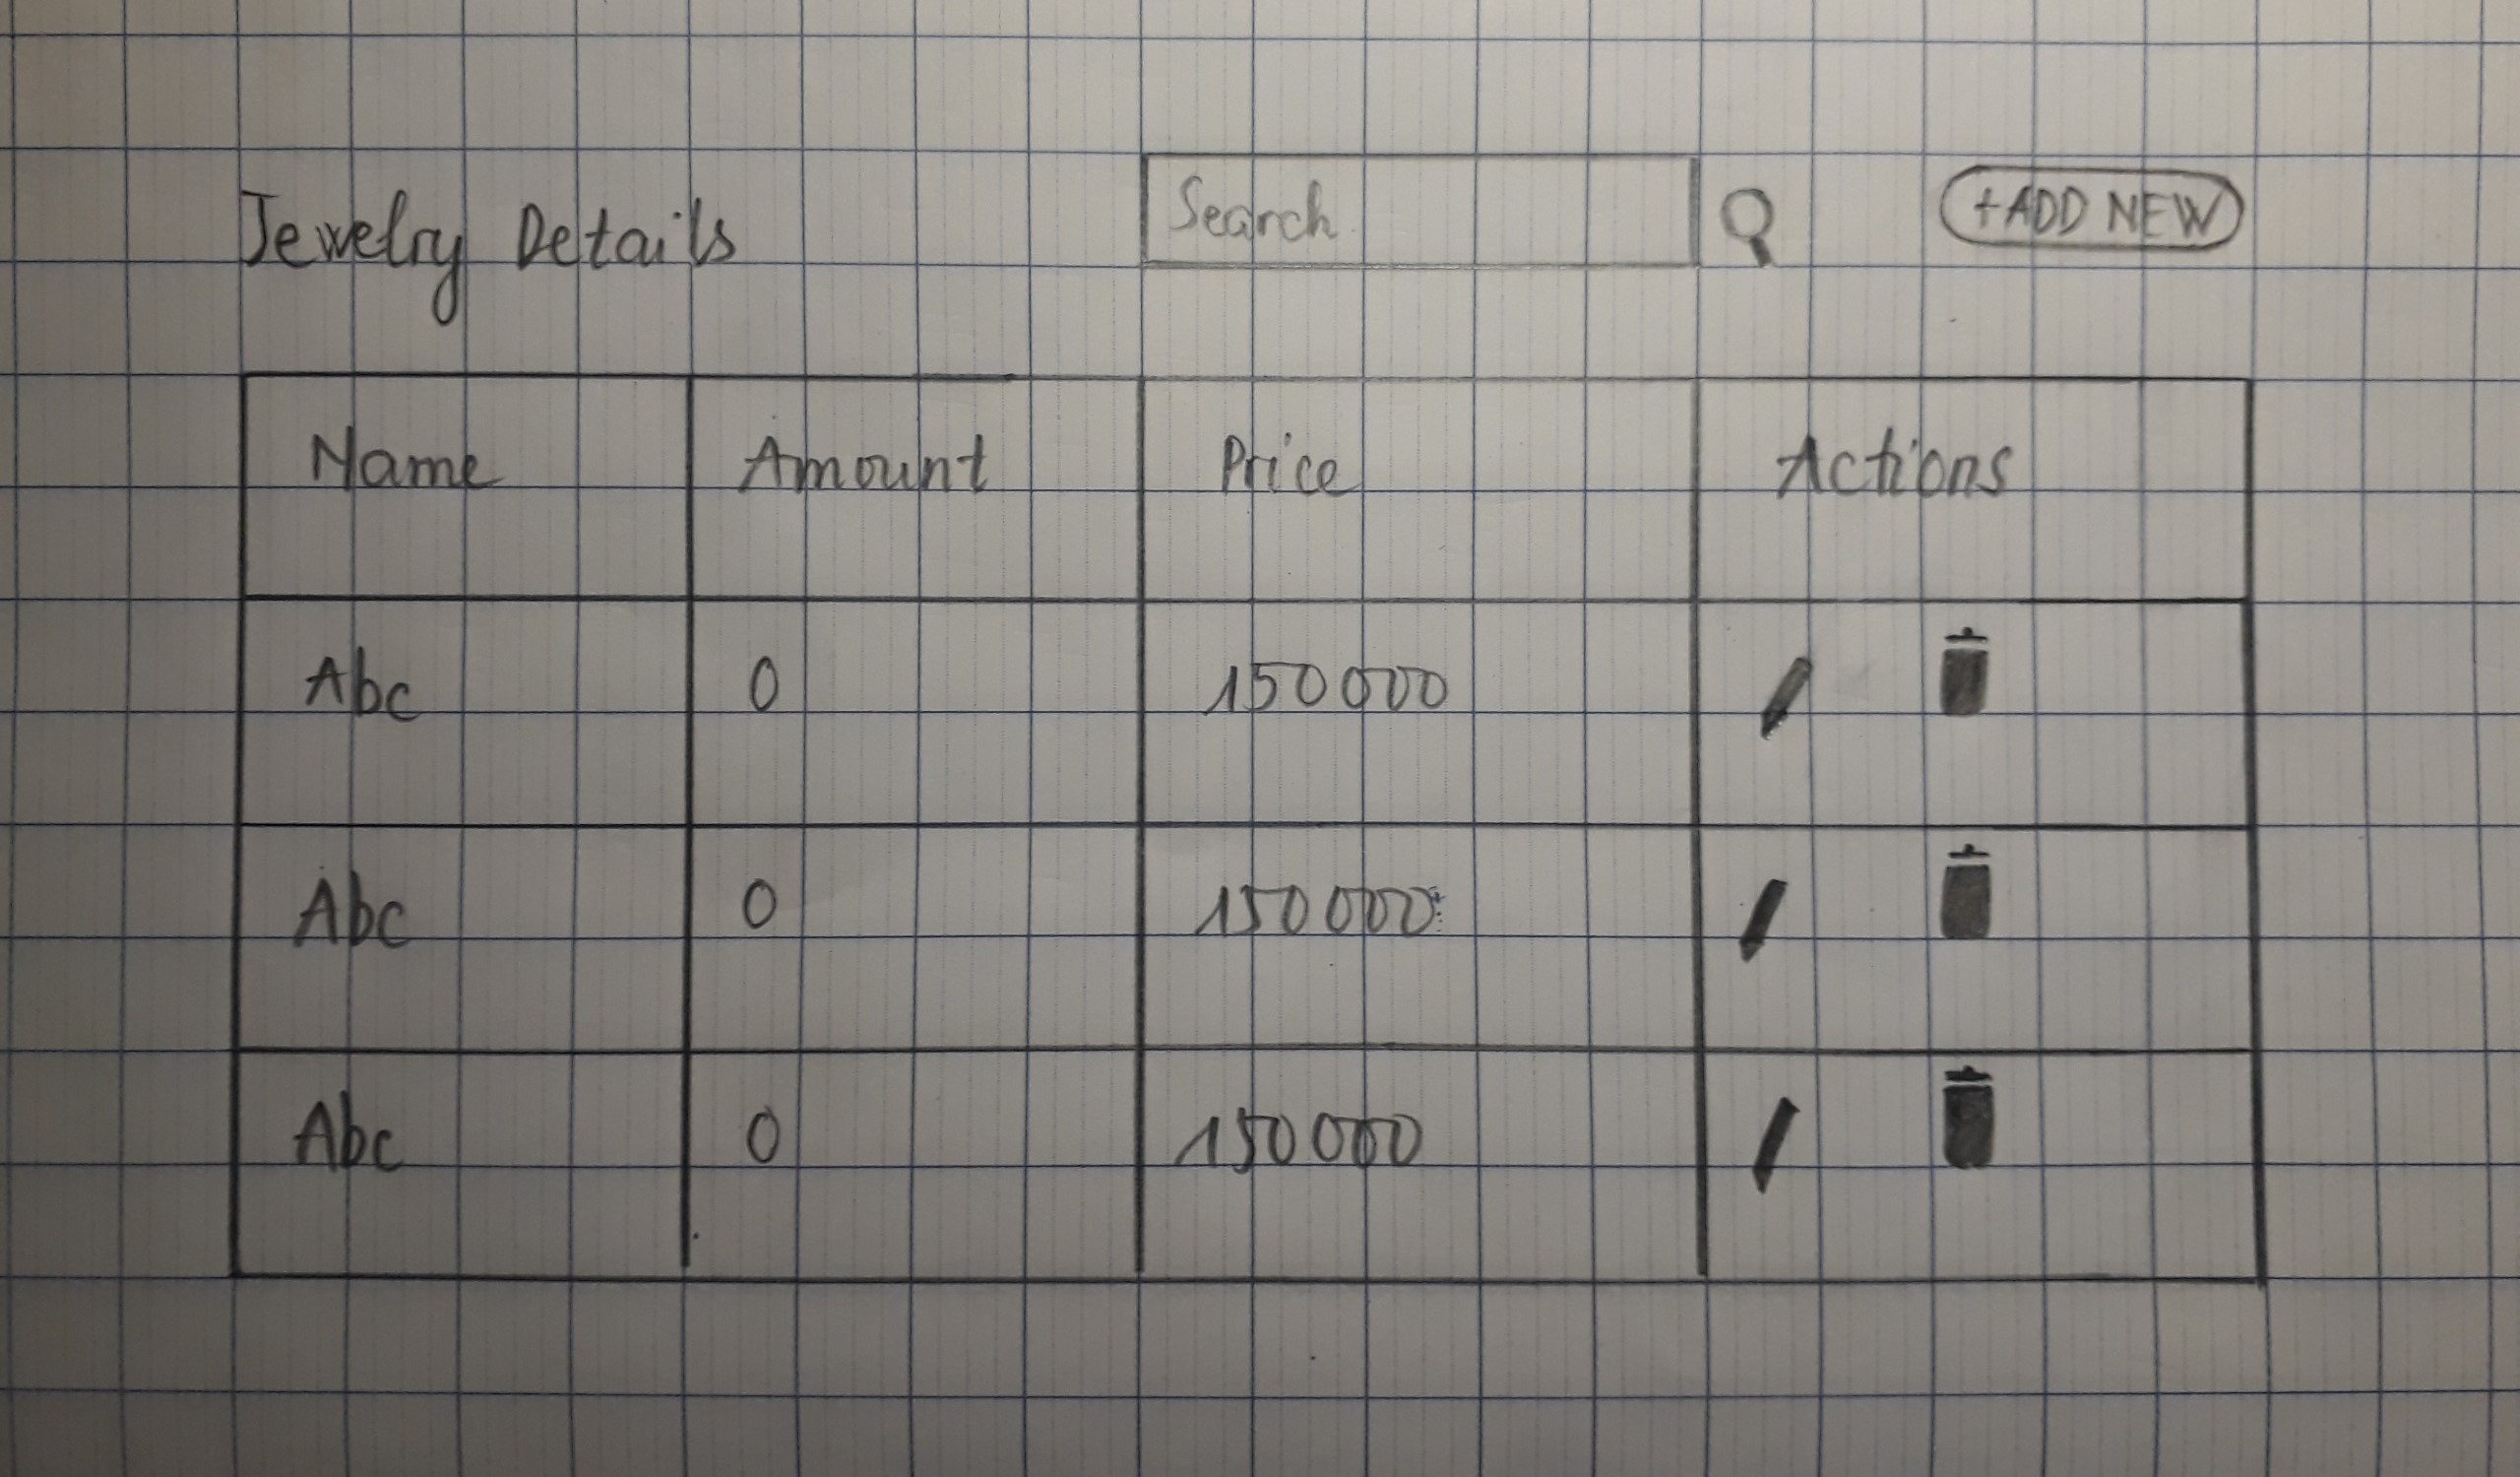 Jewelry Details Search +ADD NEW
Name Amount Price Actions
Abc 0 150000
Abc 0 150000
Abc 0 150000